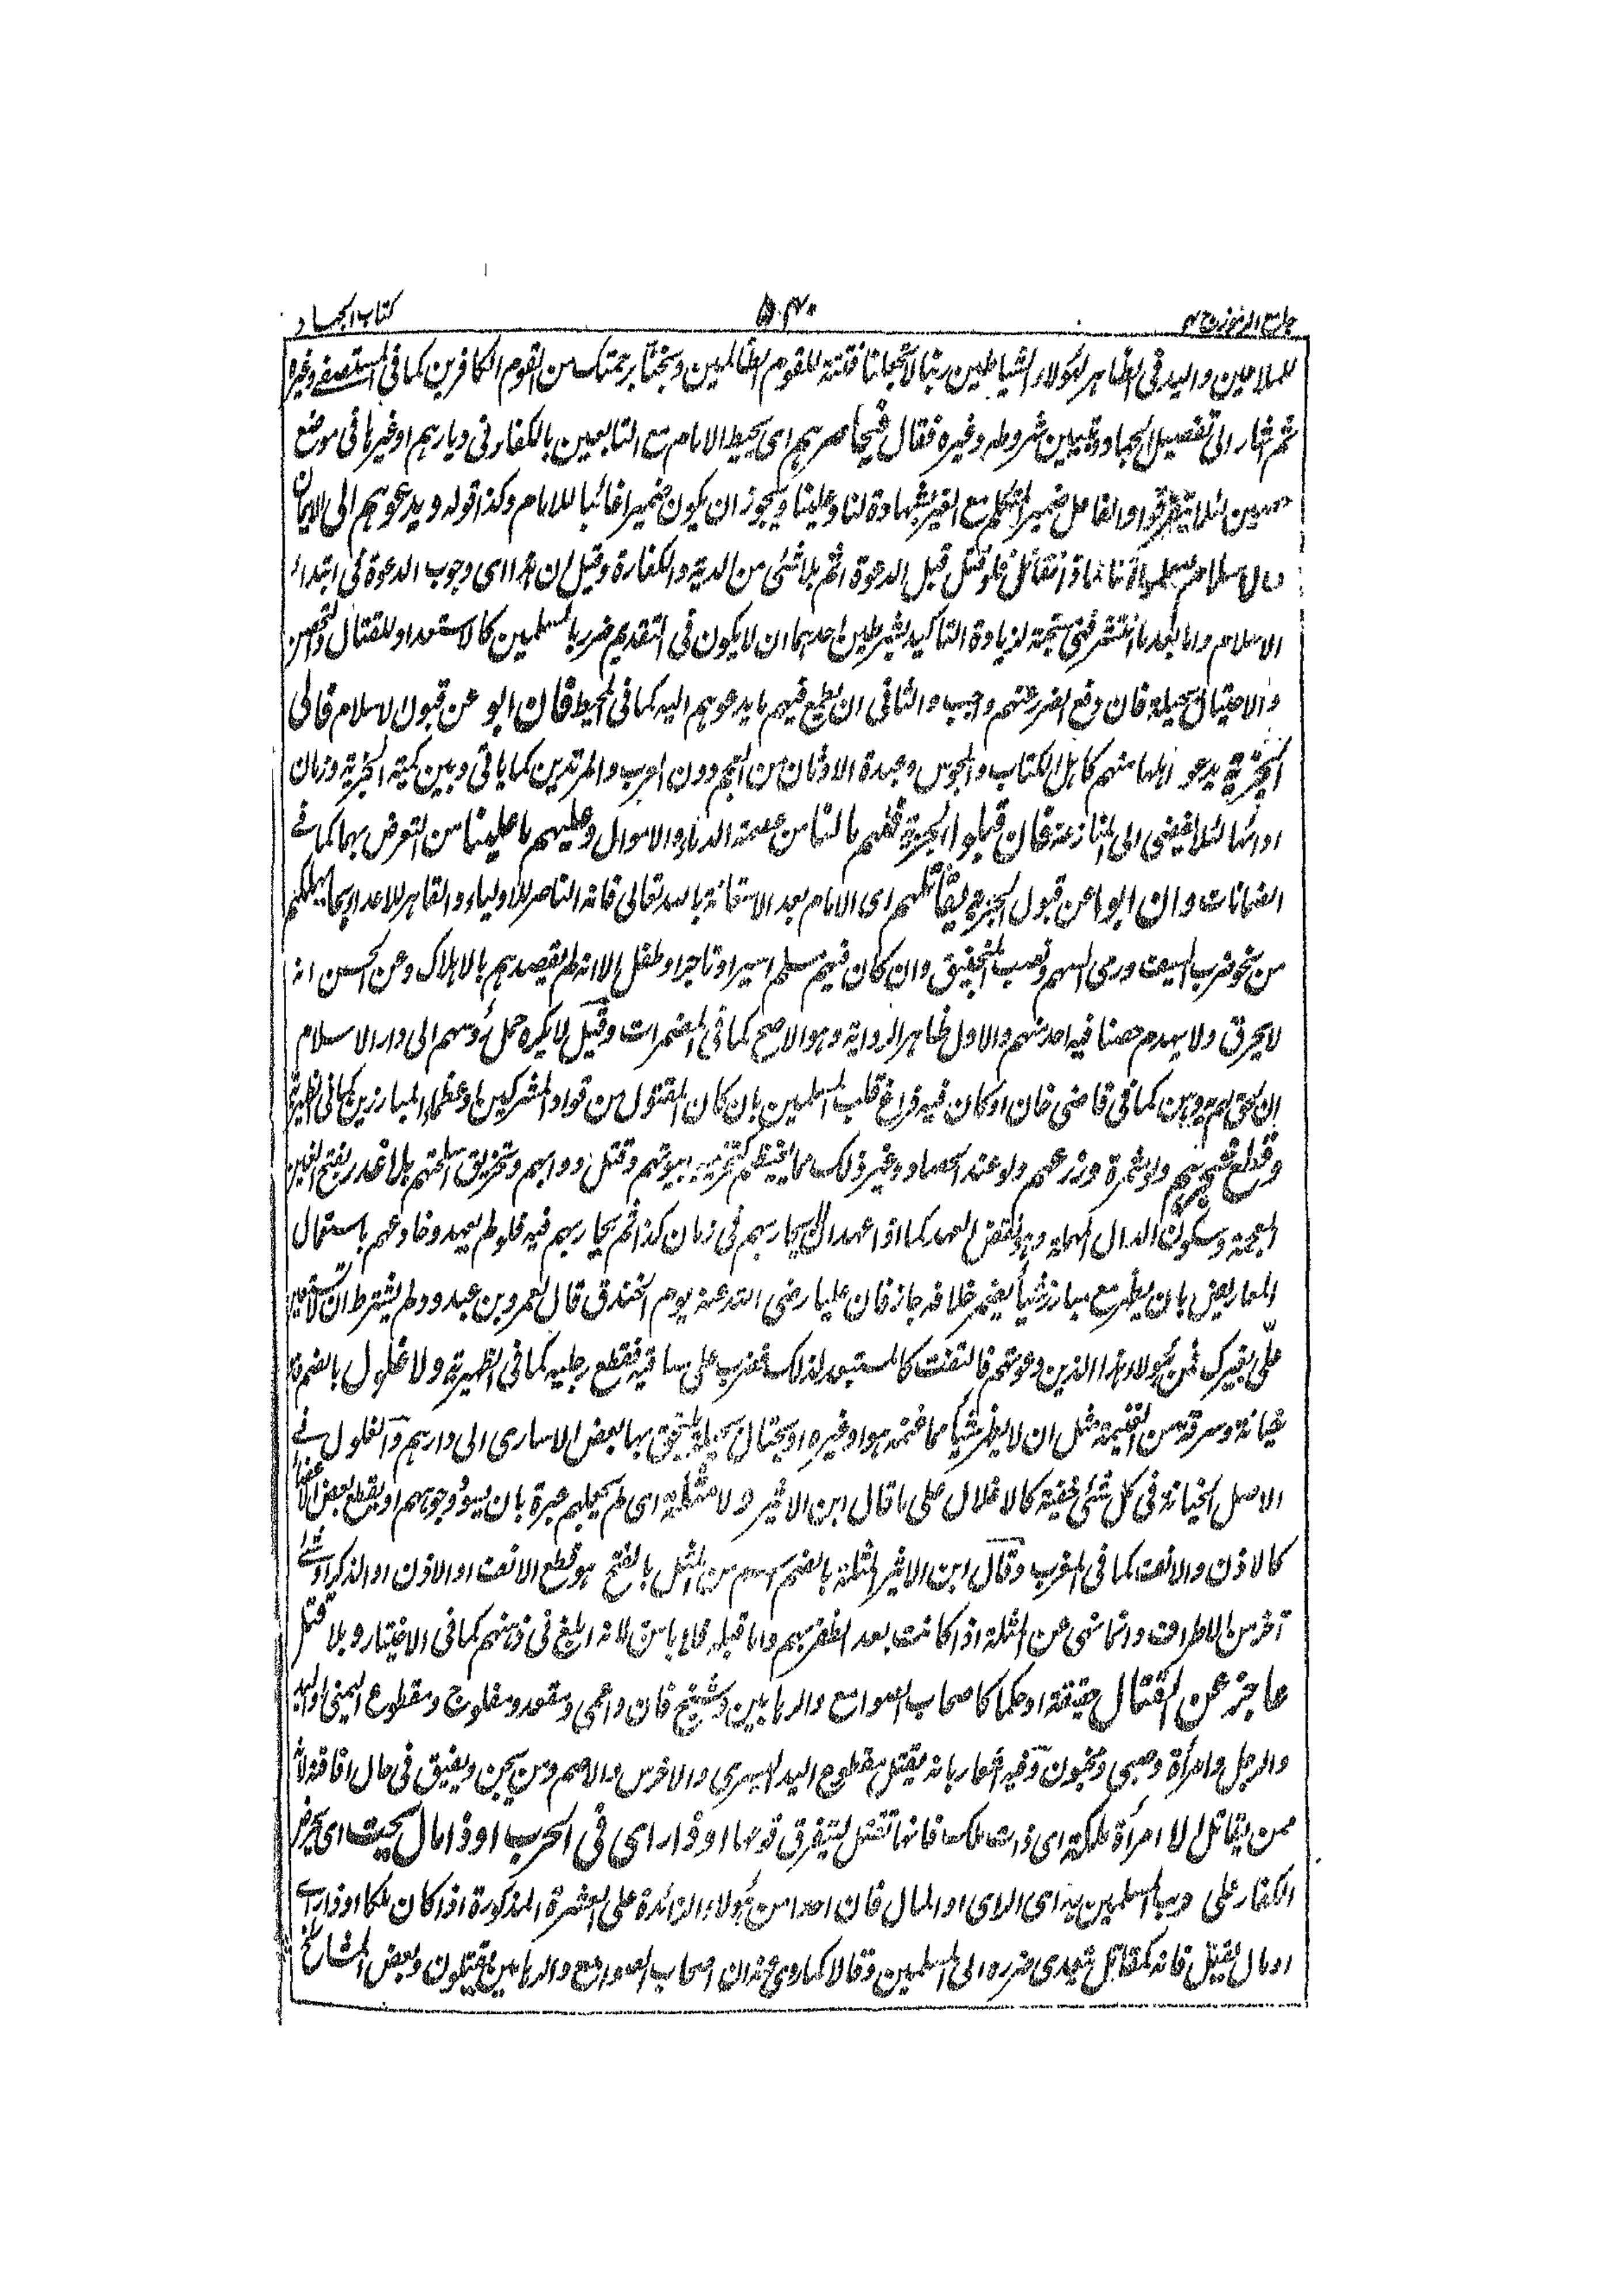 جامع الرموز ج ۴ ۵۴۰ كتاب الجهاد
للسلاطين واليد فى الظاهر لهؤلاء الشياطين ربنا لا تجعلنا فتنة للقوم الظالمين ونجنا برحمتك من القوم الكافرين كما فى المستصفے وغيره
ثم اشار الى تفصيل الجهاد وتبيين شروطه وغيره فقال فيحاصرهم اى يحيط الامام مع التابعين بالكفار فى ديارهم او غيرها فى موضع
حصين لئلا يتفرقوا والفاعل ضمير المتكلم مع الغير بشهادة لنا وعلينا ويجوز ان يكون ضميرا غائبا للامام وكذا قوله ويدعوهم الى الايمان
والاسلام فلو قتل قبل الدعوة اثم بلا شئ من الدية والكفارة وقيل ان هذا اى وجوب الدعوة فى ابتداء
الاسلام واما بعد ما انتشر فهى مستحبة لزيادة التاكيد بشرطين احدهما ان لا يكون فى التقديم ضرر بالمسلمين كالاستعداد للقتال والتحصن
والاحتيال بحيلة فان دفع الضرر عنهم واجب والثانى ان يطمع فيهم ما يدعوهم اليه كما فى المحيط فان ابو عن قبول الاسلام فالى
الجزية يدعو اهلها منهم كاهل الكتاب والمجوس وعبدة الاوثان من العجم دون العرب والمرتدين كما ياتى ويبين كمية الجزية وزمان
ادائها لئلا يفضى الى المنازعة فان قبلوا الجزية فلهم ما لنا من عصمة الدماء والاموال وعليهم ما علينا من التعرض بهما كما فے
الضمانات وان ابوا عن قبول الجزية يقاتلهم اى الامام بعد الاستعانة بالله تعالى فانه الناصر للاولياء والقاهر للاعداء بما يهلكهم
من نحو ضرب السيف ورمى السهم ونصب المنجنيق وان كان فيهم مسلم اسير او تاجر او طفل الا انه لم يقصدهم بالاهلاك وعن الحسن انه
لا يحرق ولا يهدم حصنا فيه احد منهم والاول ظاهر الرواية وهو الاصح كما فى المضمرات وقيل لا يكره حمل رؤسهم الى دار الاسلام
ان لحق بهم وهن كما فى قاضى خان او كان فيه فراغ قلب المسلمين بان كان المقتول من قواد المشركين او عظماء المبارزين كما فى الظهيرية
وقطع شجرهم ولو مثمرة وزرعهم ولو عند الحصاد وغير ذلك مما يغيظهم كتخريب بيوتهم وقتل دوابهم وتحريق امتعتهم بلا غدر بفتح الغين
المعجمة وسكون الدال المهملة وهو نقض العهد كما اذا عهد ان لا يحاربهم فى زمان كذا ثم يحاربهم فيه فلو لم يعهد وخادعهم باستعمال
المعاريض بان يظهر مع مبارز شيأ يضمر خلافه جاز فان عليا رضى الله عنه يوم الخندق قال لعمرو بن عبد ود لم يشترط ان لا تستعين
علّى بغيرك فمن هؤلاء الذين دعوتهم فالتفت كالمستبعد لذلك فضرب على ساقيه فقطع رجليه كما فى الظهيرية ولا غلول بالضم هو
خيانة وسرقة من الغنيمة مثل ان لا يظهر شيأ مما غنمه هو او غيره او يحتال بحيلة يلحق بها بعض الاسارى الى دارهم والغلول فے
الاصل الخيانة فى كل شئ خفية كالاغلال على ما قال ابن الاثير ولا مثلة اى لم يجعلهم عبرة بان يسود وجوههم او يقطع بعض الاعضاء
كالاذن والانف كما فى المغرب وقال ابن الاثير المثلة بالضم اسم من المثل بالفتح هو قطع الانف او الاذن او الذكر او شئ
آخر من الاطراف وانما نهى عن المثلة اذا كانت بعد الظفر بهم واما قبله فلا باس لانه ابلغ فى ذهنهم كما فى الاختيار وبلا قتل
عاجز عن القتال حقيقة او حكما كاصحاب الصوامع والرهابين وشيخ فان واعمى ومقعد ومفلوج ومقطوع اليمنى او اليد
والرجل وامرأة وصبى ومجنون وفيه اشعار بانه يقتل مقطوع اليد اليسرى والاخرس والاصم ومن يجن ويفيق فى حال افاقته
ممن يقاتل الا امرأة ملكة اى ذات ملك فانها تقتل ليتفرق قومها او ذا راى فى الحرب او ذا مال يحث اى يحرض
الكفار على حرب المسلمين به اى الراى او المال فان احدا من هؤلاء الزائدة على العشرة المذكورة اذا كان ملكا او ذا راے
او مال يقتل فانه كمقاتل تعدى ضرره الى المسلمين وقالا كما روى عنه ان اصحاب الصوامع والرهابين يقتلون وبعض المشائخ